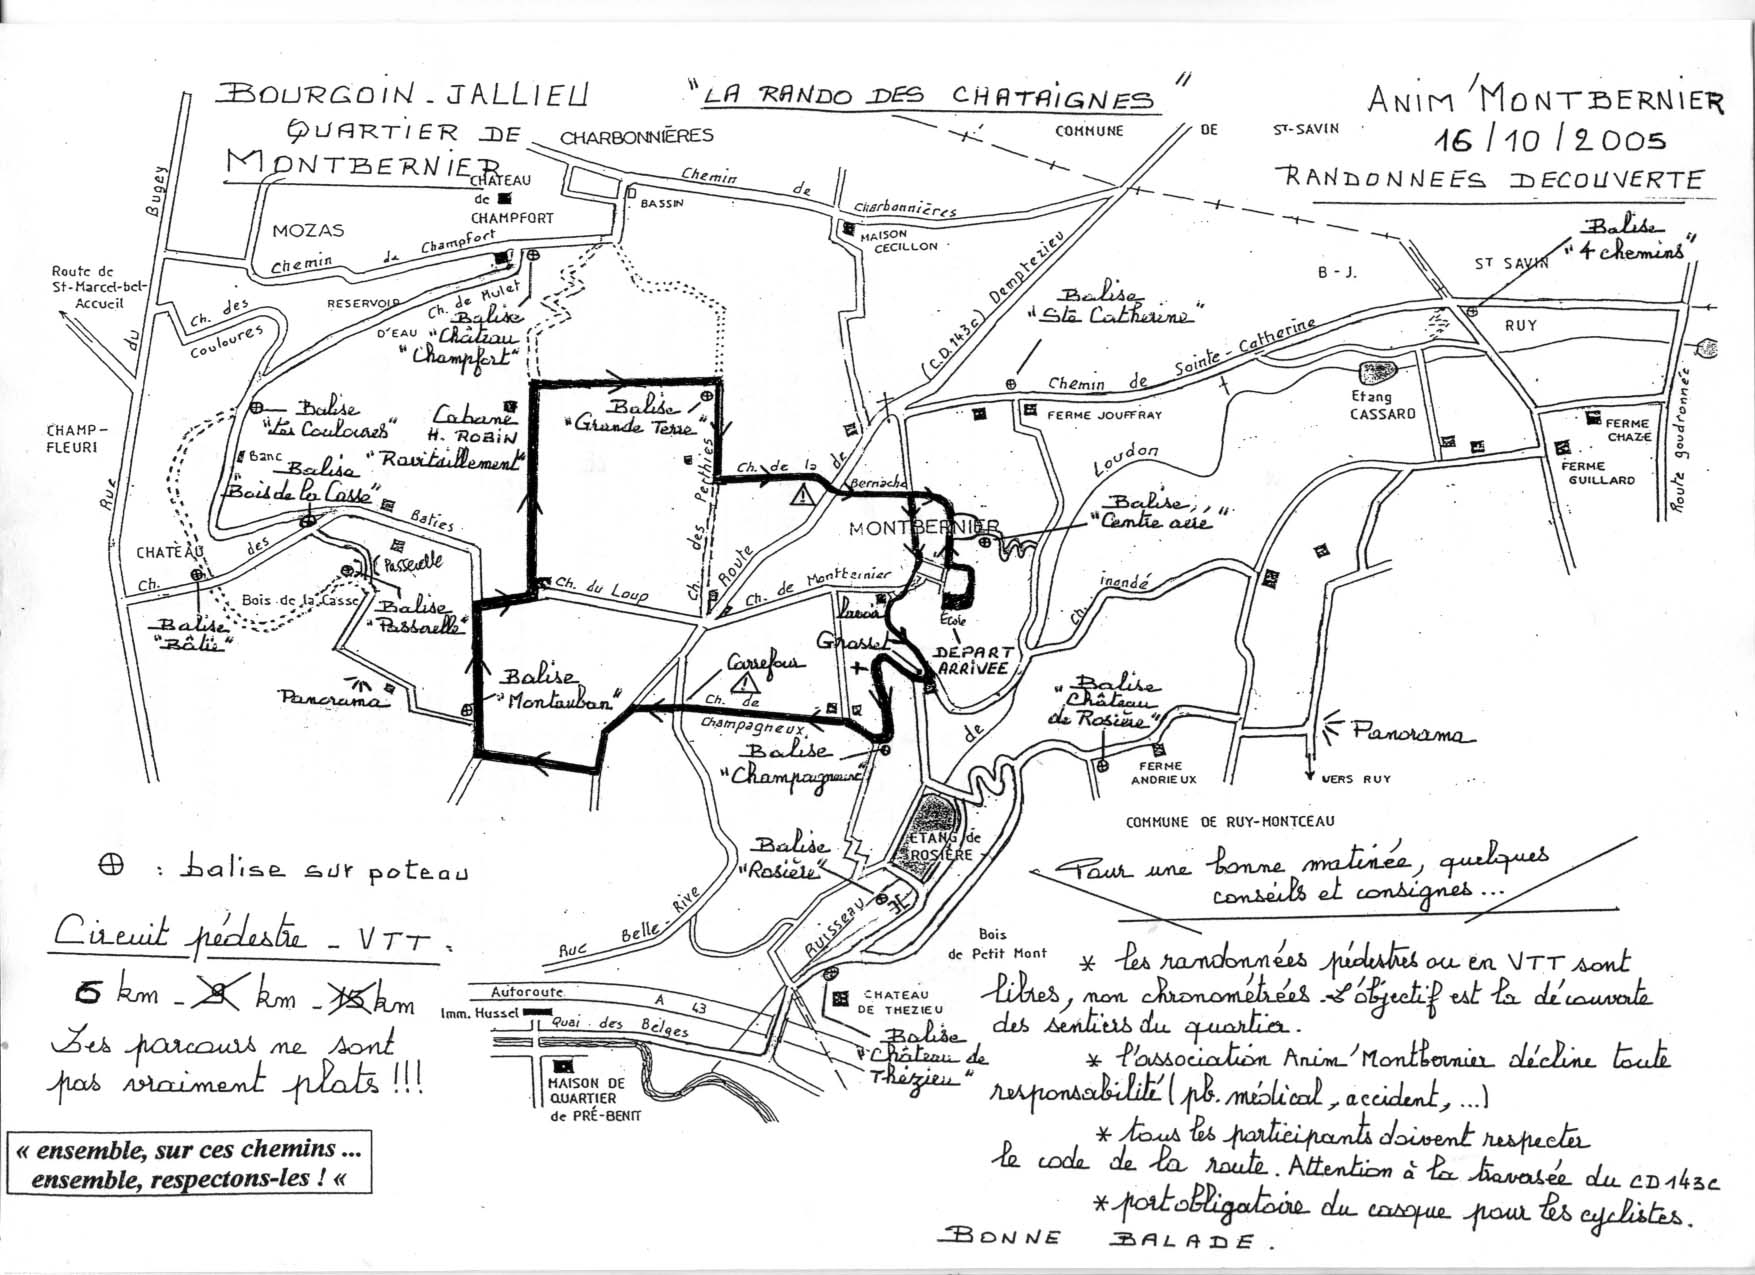 BOURGOIN-JALLIEU
QUARTIER DE
MONTBERNIER
"LA RANDO DES CHATAIGNES"
ANIM'MONTBERNIER
16/10/2005
RANDONNEES DECOUVERTE
CHARBONNIÈRES
COMMUNE DE ST-SAVIN
CHATEAU
de
CHAMPFORT
BASSIN
Chemin de Charbonnières
MAISON
CECILLON
MOZAS
Chemin de Champfort
Rue du Bugey
Route de
St-Marcel-bel-
Accueil
Ch. des
Couloures
RESERVOIR
D'EAU
Ch. de Mulet
Balise
"Château
"Champfort"
Route de Demptezieu
(C.D.143c)
Balise
"Ste Catherine"
B-J.
ST SAVIN
Balise
"4 chemins"
RUY
Chemin de Sainte-Catherine
Route goudronnée
Etang
CASSARD
FERME JOUFFRAY
FERME
CHAZE
FERME
GUILLARD
CHAMP-
FLEURI
Balise
"Les Couloures"
Banc
Balise
"Bois de la Casse"
Cabane
H. ROBIN
"Ravitaillement"
Balise
"Grande Terre"
Ch. des Perthies
Ch. de la Bernache
Loudon
MONTBERNIER
Balise
"Centre aéré"
CHATEAU
Ch. des Baties
Passerelle
Bois de la Casse
Balise
"Passerelle"
Balise
"Bâtie"
Ch. du Loup
Ch. de Montbernier
lavoir
Grosset
Ecole
DEPART
ARRIVEE
Ch. inondé
de
Panorama
Balise
"Montauban"
Carrefour
Ch. de
Champagneux
Balise
"Champagneux"
"Balise
Château
de Rosière"
FERME
ANDRIEUX
Panorama
VERS RUY
COMMUNE DE RUY-MONTCEAU
ETANG de
ROSIÈRE
Balise
"Rosière"
Ruisseau
Rue Belle-Rive
Bois
de Petit Mont
CHATEAU
DE THEZIEU
Balise
"Château de
Thézieu"
Autoroute A 43
Imm. Hussel
Quai des Belges
MAISON DE
QUARTIER
de PRÉ-BENIT
⊕ : balise sur poteau
Circuit pédestre - VTT :
6 km - 9 km - 15 km
Les parcours ne sont
pas vraiment plats !!!
« ensemble, sur ces chemins ...
ensemble, respectons-les ! «
Pour une bonne matinée, quelques
conseils et consignes...
* les randonnées pédestres ou en VTT sont
libres, non chronométrées. L'objectif est la découverte
des sentiers du quartier.
* l'association Anim'Montbernier décline toute
responsabilité (pb. médical, accident, ...)
* tous les participants doivent respecter
le code de la route. Attention à la traversée du CD143c
* port obligatoire du casque pour les cyclistes.
BONNE BALADE.